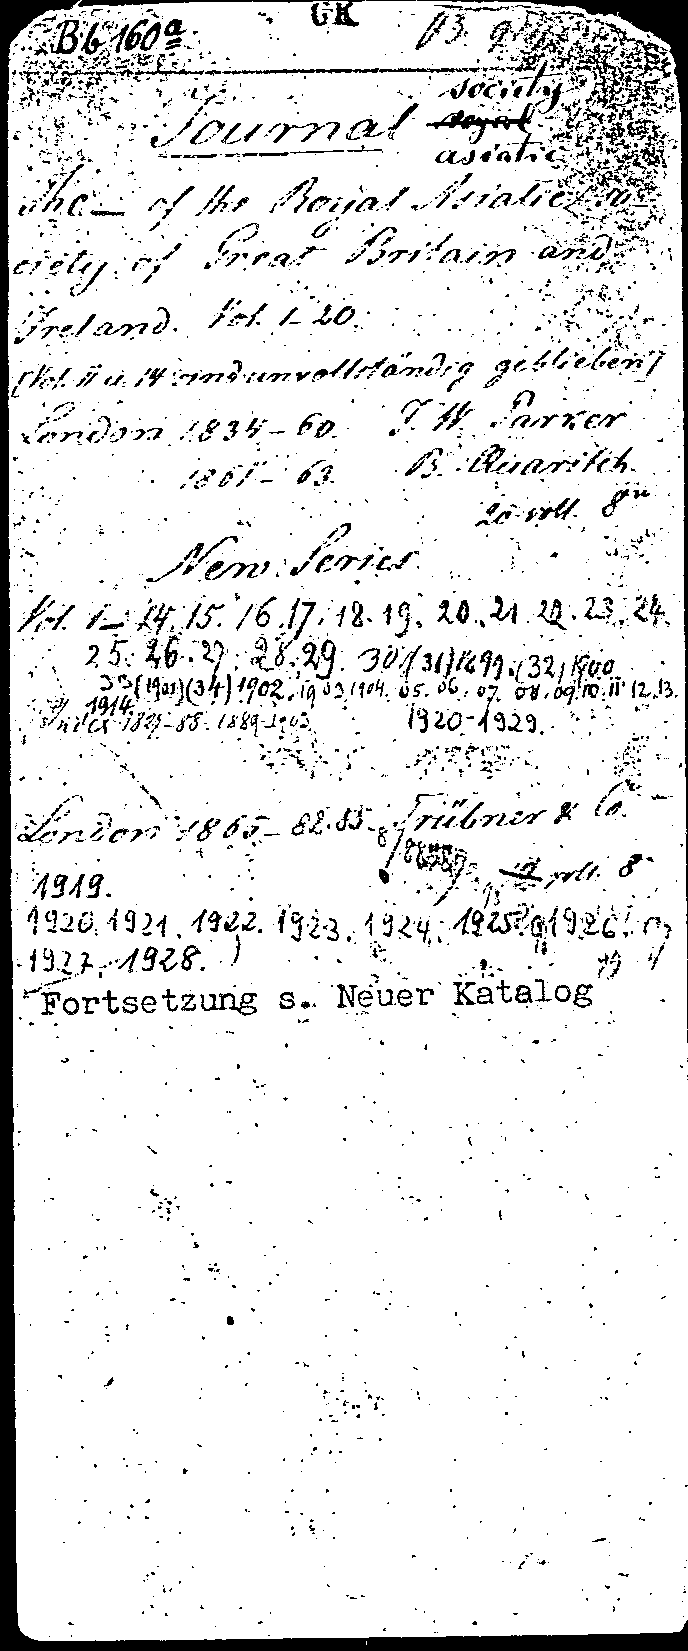 GK
Bb 160a
society
Journal royal
asiatic
The — of the Royal Asiatic so-
ciety of Great Britain and
Ireland. Vol. 1–20.
[Vol. 11 u. 14 sind unvollständig geblieben]
London 1834–60. J. W. Parker
1861–63. B. Quaritch
20 voll. 8vo
New Series
Vol. 1–14. 15. 16. 17. 18. 19. 20. 21. 22. 23. 24.
25. 26. 27. 28. 29. 30. (31) 1899. (32) 1900
33 (1901) (34) 1902. 1903. 1904. 05. 06. 07. 08. 09. 10. 11. 12. 13.
1914.
Index 1827–88. 1889–1903 1920–1929.
London 1865–82. 85– Trübner & Co.
voll. 8
1919.
1920. 1921. 1922. 1923. 1924. 1925. 1926.
1927. 1928.
Fortsetzung s. Neuer Katalog